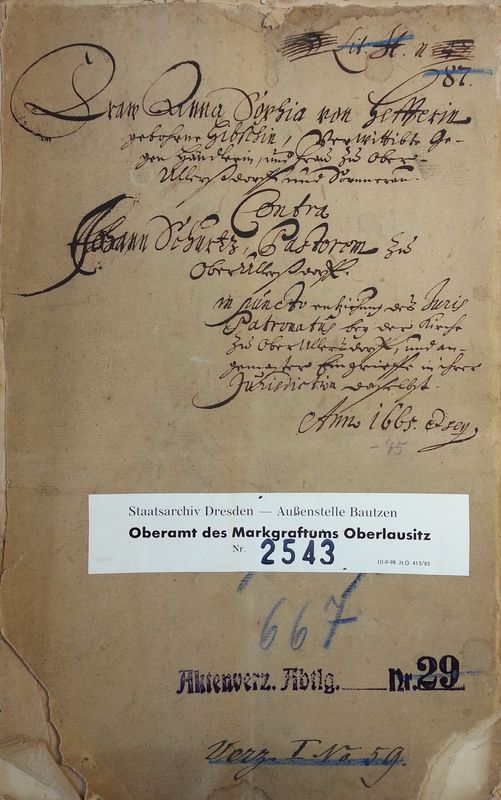 Lit. H. n
87.
Fraw Anna Sophia von Hefferin
gebohrne Hibschin, Verwittibte Ge-
gen Händlerin, und Frau zu Ober-
Ullerßdorff und Sommerau
Contra
Johann Schurtz, Pastorem zu
OberUllerßdorff.
in puncto entziehung des Juris
Patronatus bey der Kirche
zu OberUllersdorff, und an-
gemaster Eingrieffe in ihrer
Jurisdiction daselbst.
Anno 1665. et seq
- 75
Staatsarchiv Dresden — Außenstelle Bautzen
Oberamt des Markgraftums Oberlausitz
Nr. 2543
III-9-98 Jt G 413/85
667
Aktenverz. Abtlg. Nr. 29
Verz. I No 59.